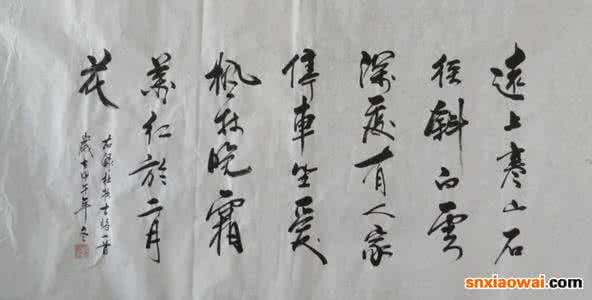 遠上寒山石
徑斜白雲
深處有人家
停車坐愛
楓林晚霜
葉紅於二月
花
右錄杜牧之詩一首
歲在甲午年冬
snxiaowai.com